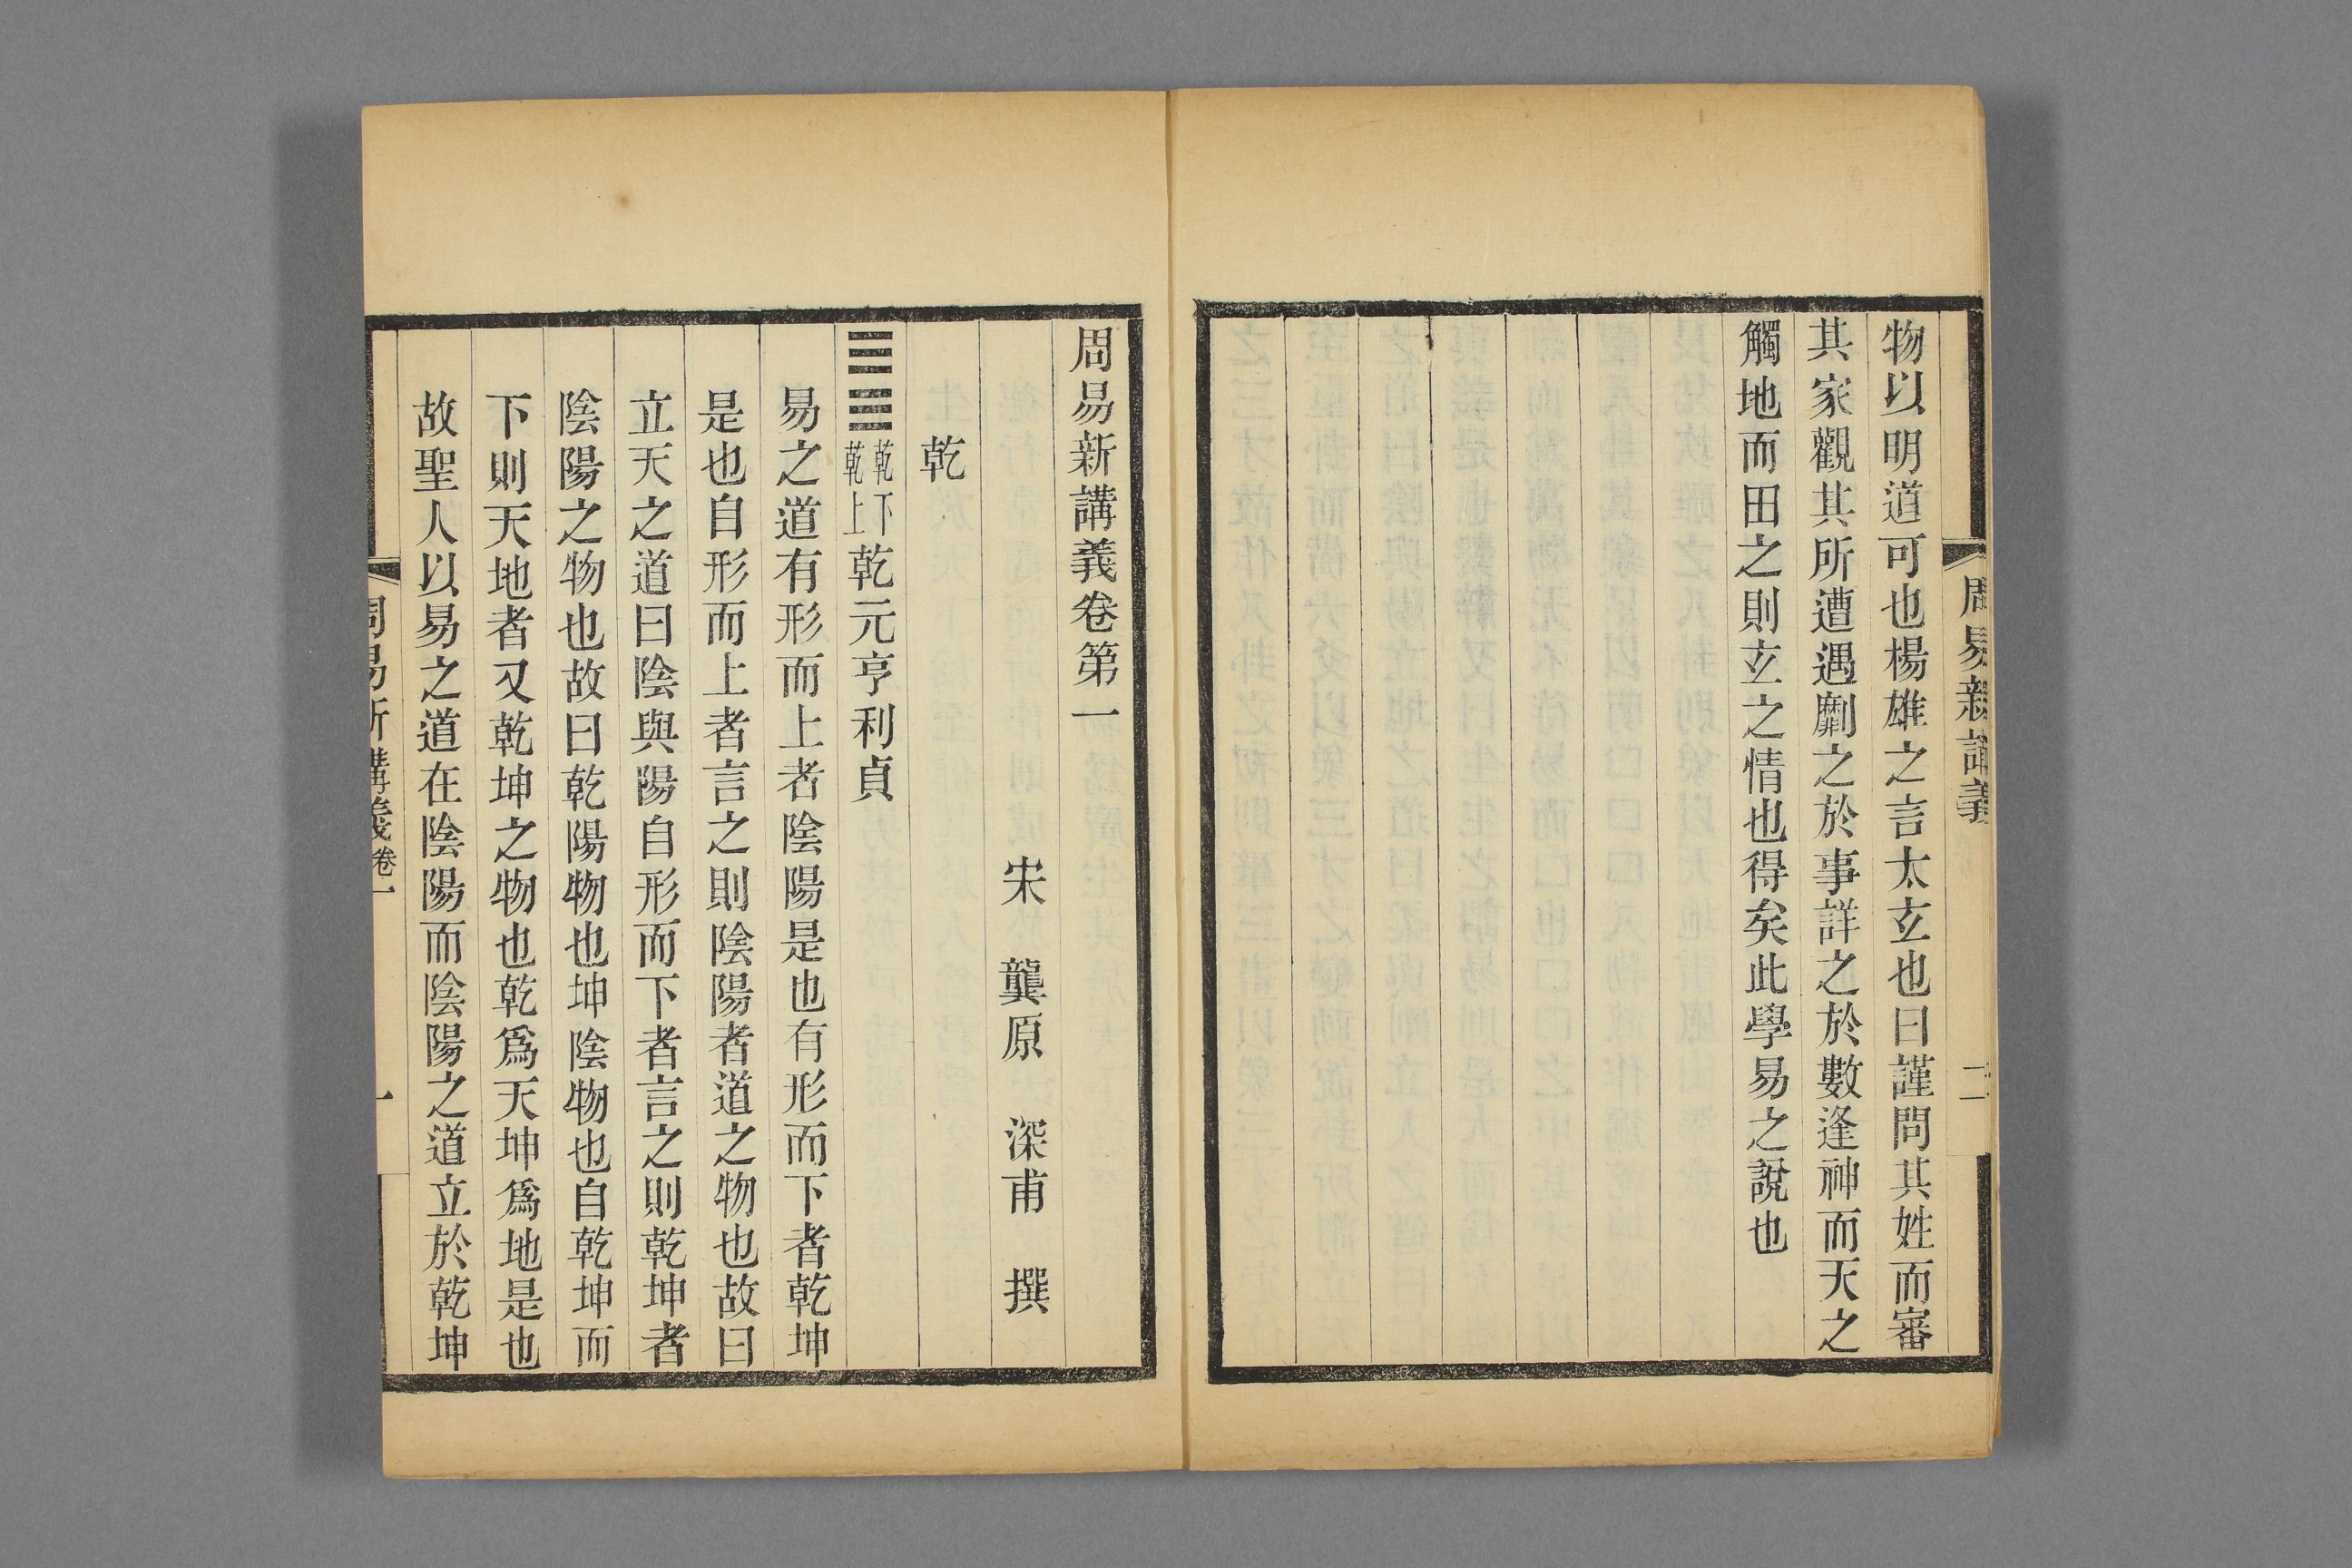 周易新講義
二
物以明道可也楊雄之言太玄也曰謹問其姓而審
其家觀其所遭遇劘之於事詳之於數逢神而天之
觸地而田之則玄之情也得矣此學易之說也
周易新講義卷第一
宋 龔原 深甫 撰
乾
乾下乾上乾元亨利貞
易之道有形而上者陰陽是也有形而下者乾坤
是也自形而上者言之則陰陽者道之物也故曰
立天之道曰陰與陽自形而下者言之則乾坤者
陰陽之物也故曰乾陽物也坤陰物也自乾坤而
下則天地者又乾坤之物也乾爲天坤爲地是也
故聖人以易之道在陰陽而陰陽之道立於乾坤
周易新講義卷一
一